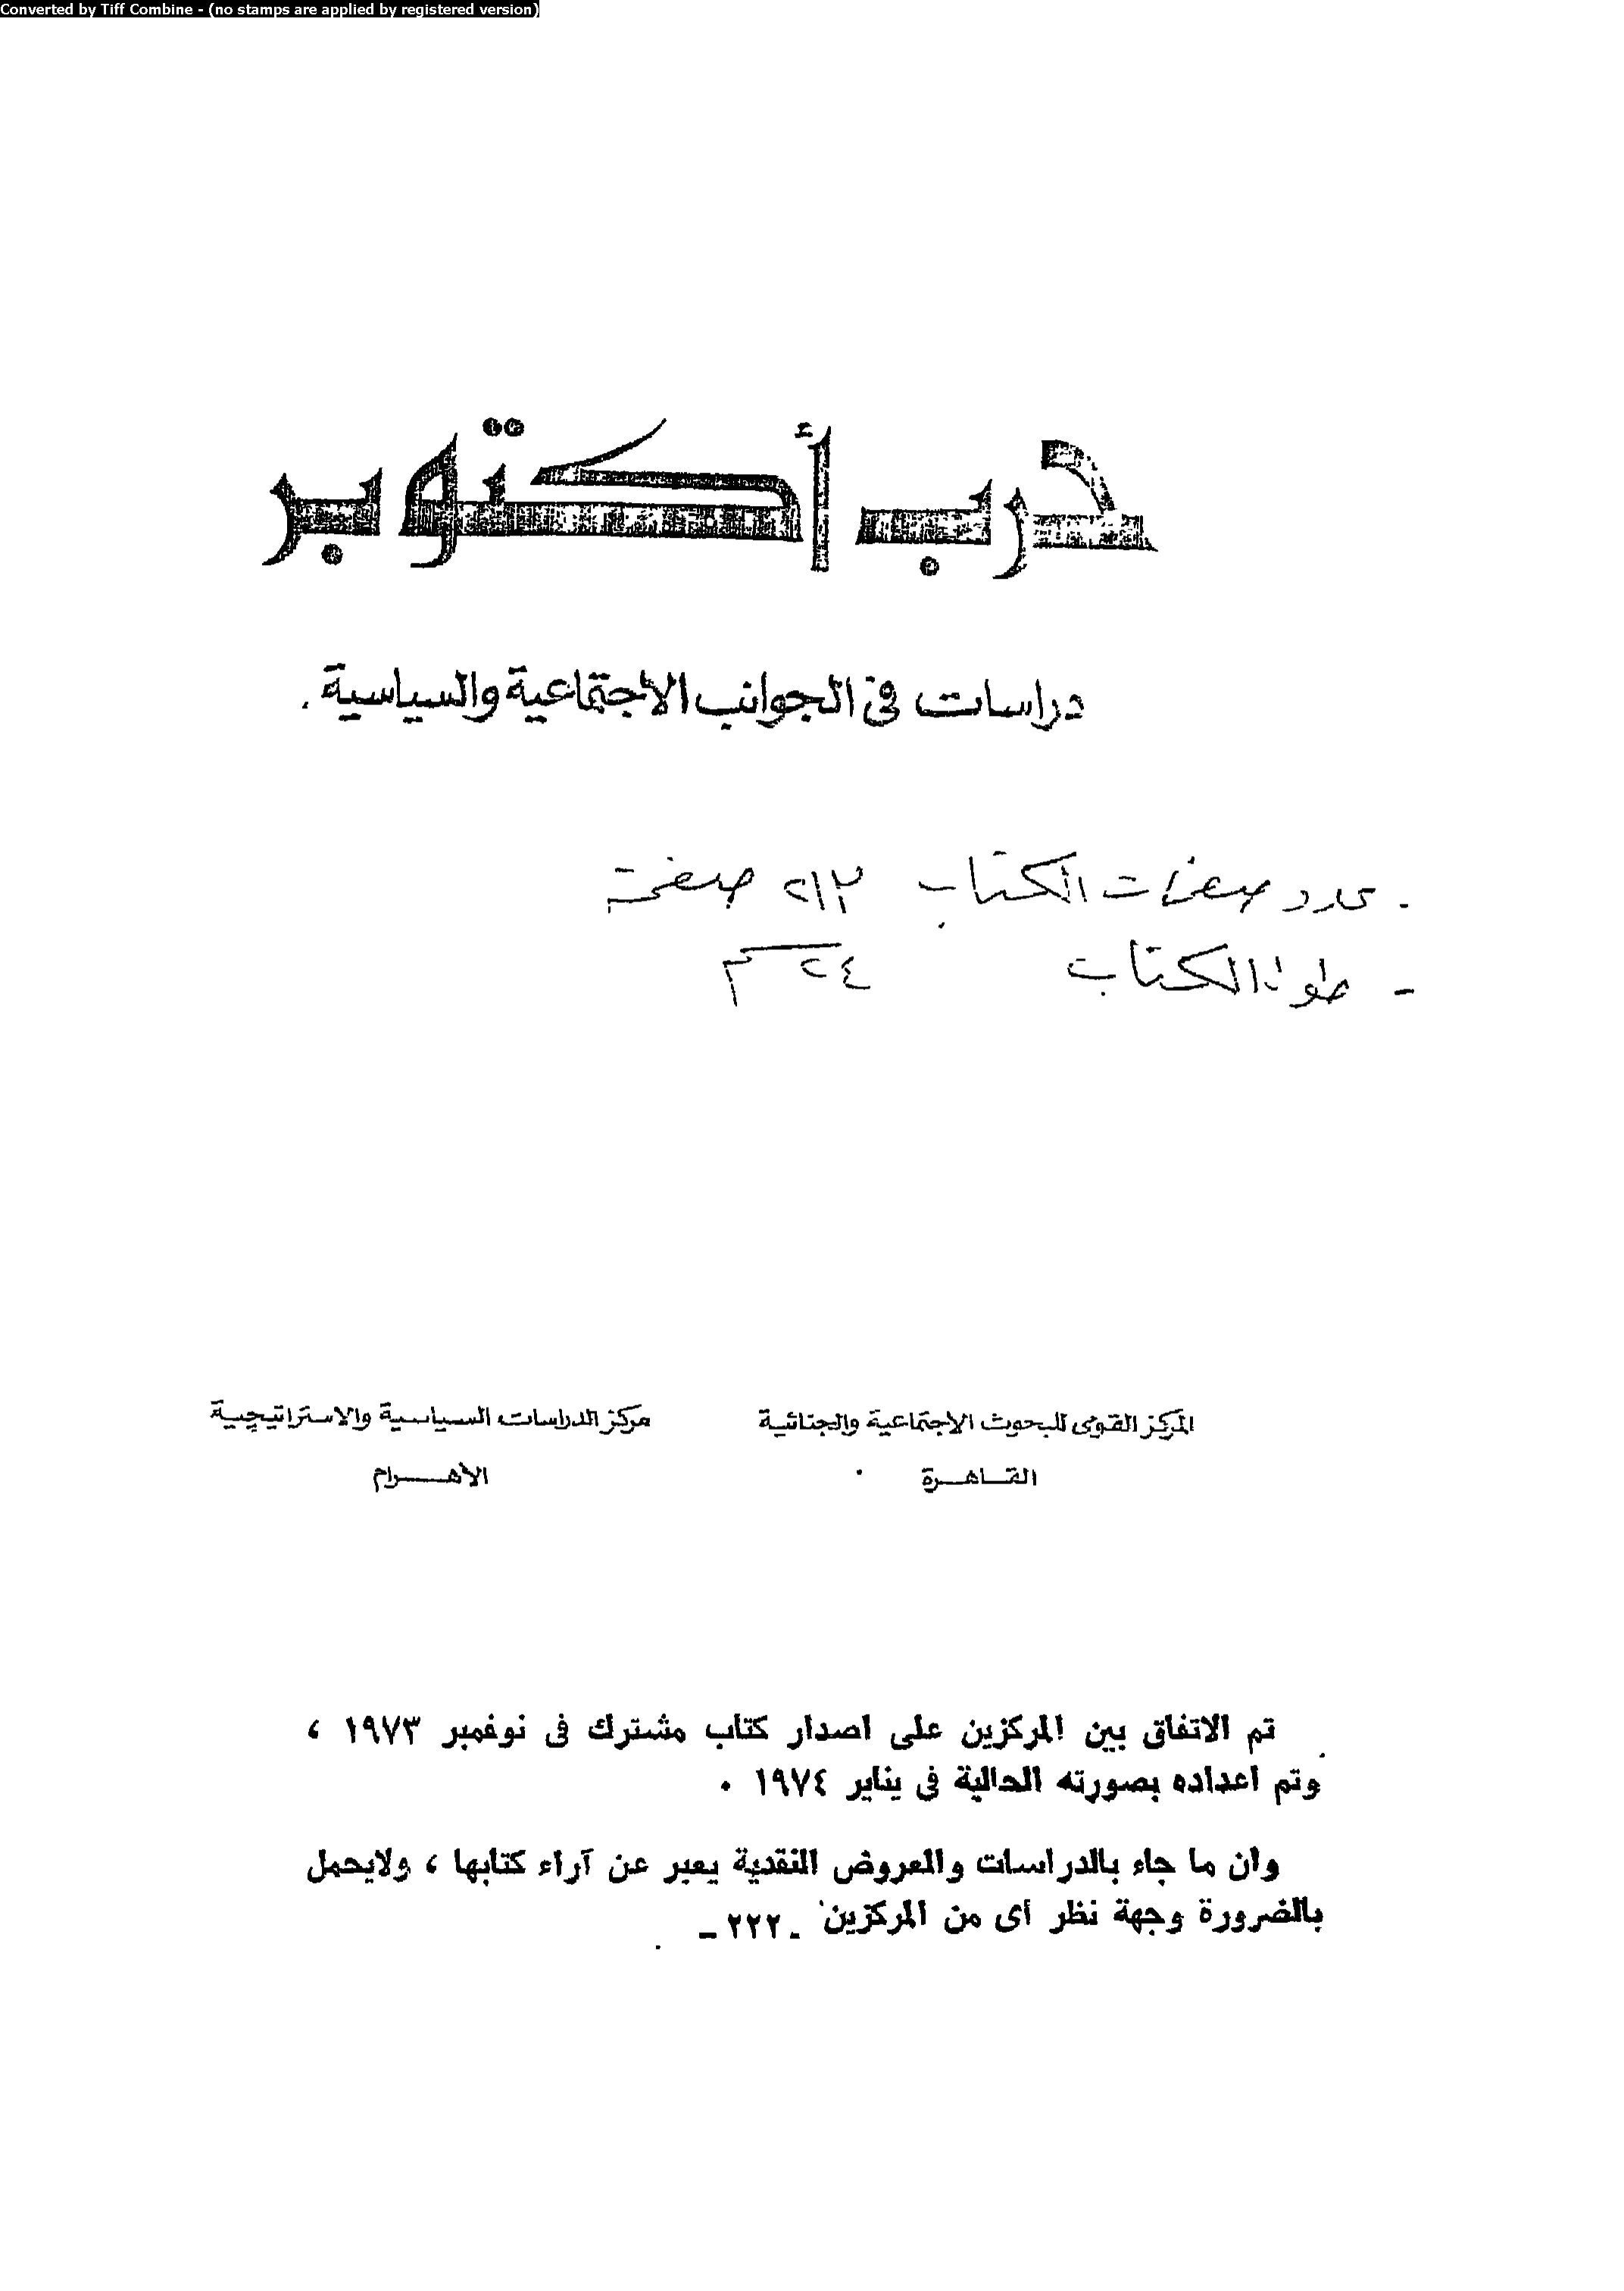 Converted by Tiff Combine - (no stamps are applied by registered version)
حرب أكتوبر
دراسات فى الجوانب الاجتماعية والسياسية .
- عدد صفحات الكتاب ٢١٣ صفحة
- طول الكتاب ٢٤ سم
المركز القومى للبحوث الاجتماعية والجنائية
القاهرة
مركز الدراسات السياسية والاستراتيجية
الأهرام
تم الاتفاق بين المركزين على اصدار كتاب مشترك فى نوفمبر ١٩٧٣ ،
وتم اعداده بصورته الحالية فى يناير ١٩٧٤ ٠
وان ما جاء بالدراسات والعروض النقدية يعبر عن آراء كتابها ، ولايحمل
بالضرورة وجهة نظر أى من المركزين ـ ٢٢٢ ـ